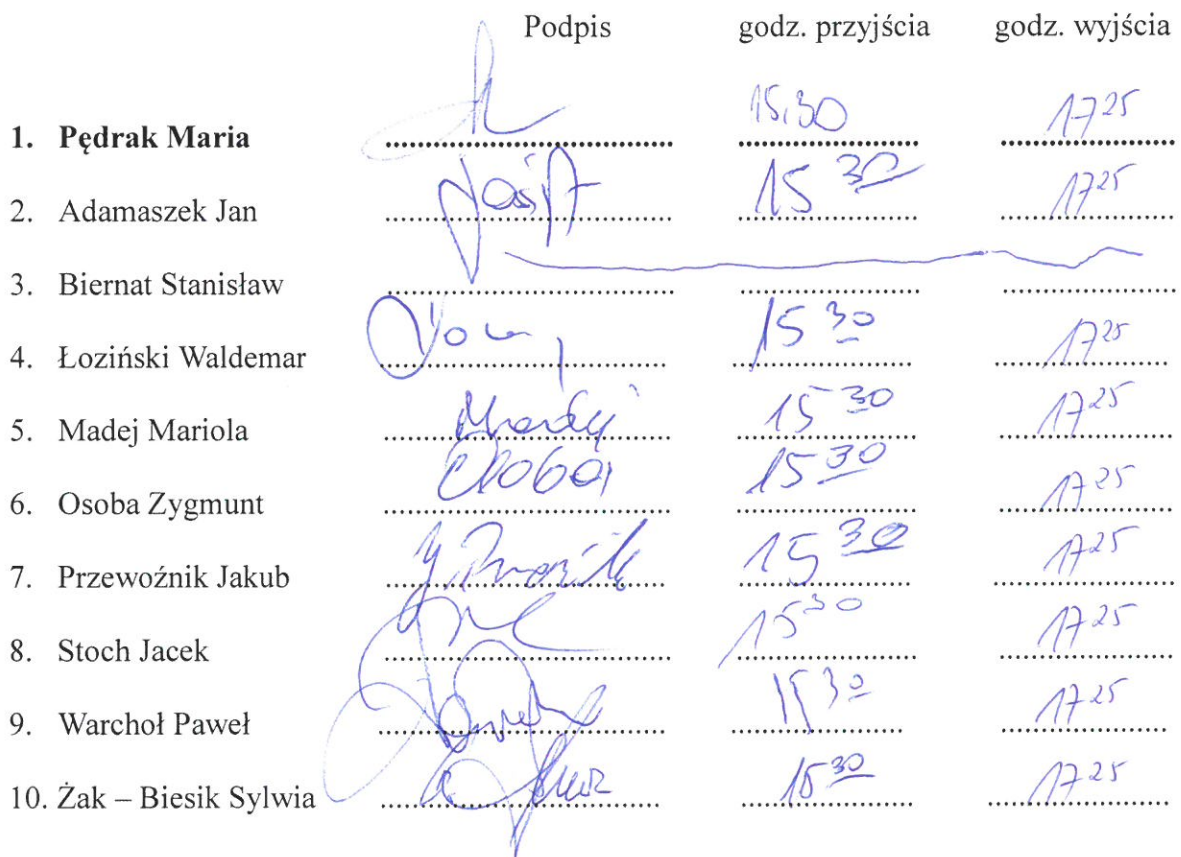 Podpis godz. przyjścia godz. wyjścia
1. Pędrak Maria 15:30 17 25
2. Adamaszek Jan 15 30 17 25
3. Biernat Stanisław
4. Łoziński Waldemar 15 30 17 25
5. Madej Mariola Madej 15 30 17 25
6. Osoba Zygmunt 15 30 17 25
7. Przewoźnik Jakub 15 30 17 25
8. Stoch Jacek 15 30 17 25
9. Warchoł Paweł 15 30 17 25
10. Żak – Biesik Sylwia 15 30 17 25